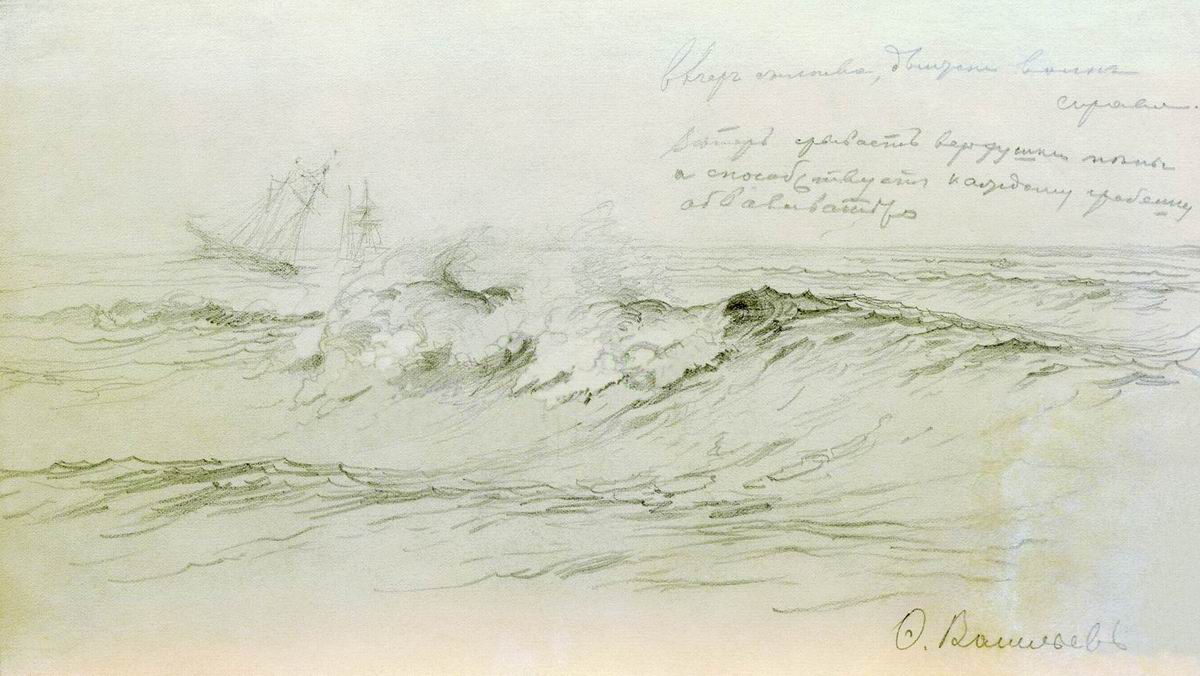 Вѣтеръ движение волнъ
справа.
Вѣтеръ срываетъ верхушки пѣны
и способствуетъ каждому гребешку
обваливаться
Ѳ. Васильевъ